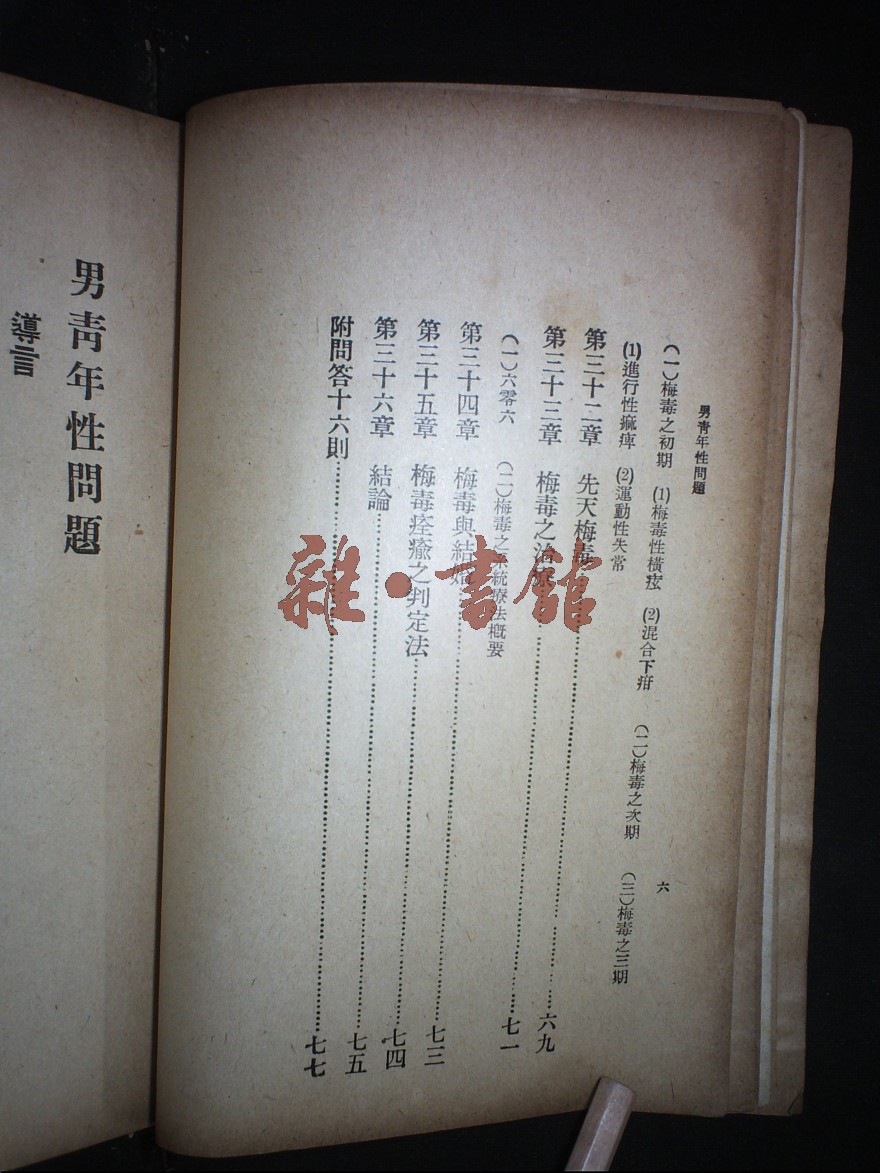 男青年性問題
六
(一)梅毒之初期 (1)梅毒性橫痃 (2)混合下疳 (二)梅毒之次期 (三)梅毒之三期
(1)進行性痲痺 (2)運動性失常
第三十二章 先天梅毒……六九
第三十三章 梅毒之治療……七一
(一)六零六 (二)梅毒之系統療法概要
第三十四章 梅毒與結婚……七三
第三十五章 梅毒痊癒之判定法……七四
第三十六章 結論……七五
附問答十六則……七七
男青年性問題
導言
雜·書館